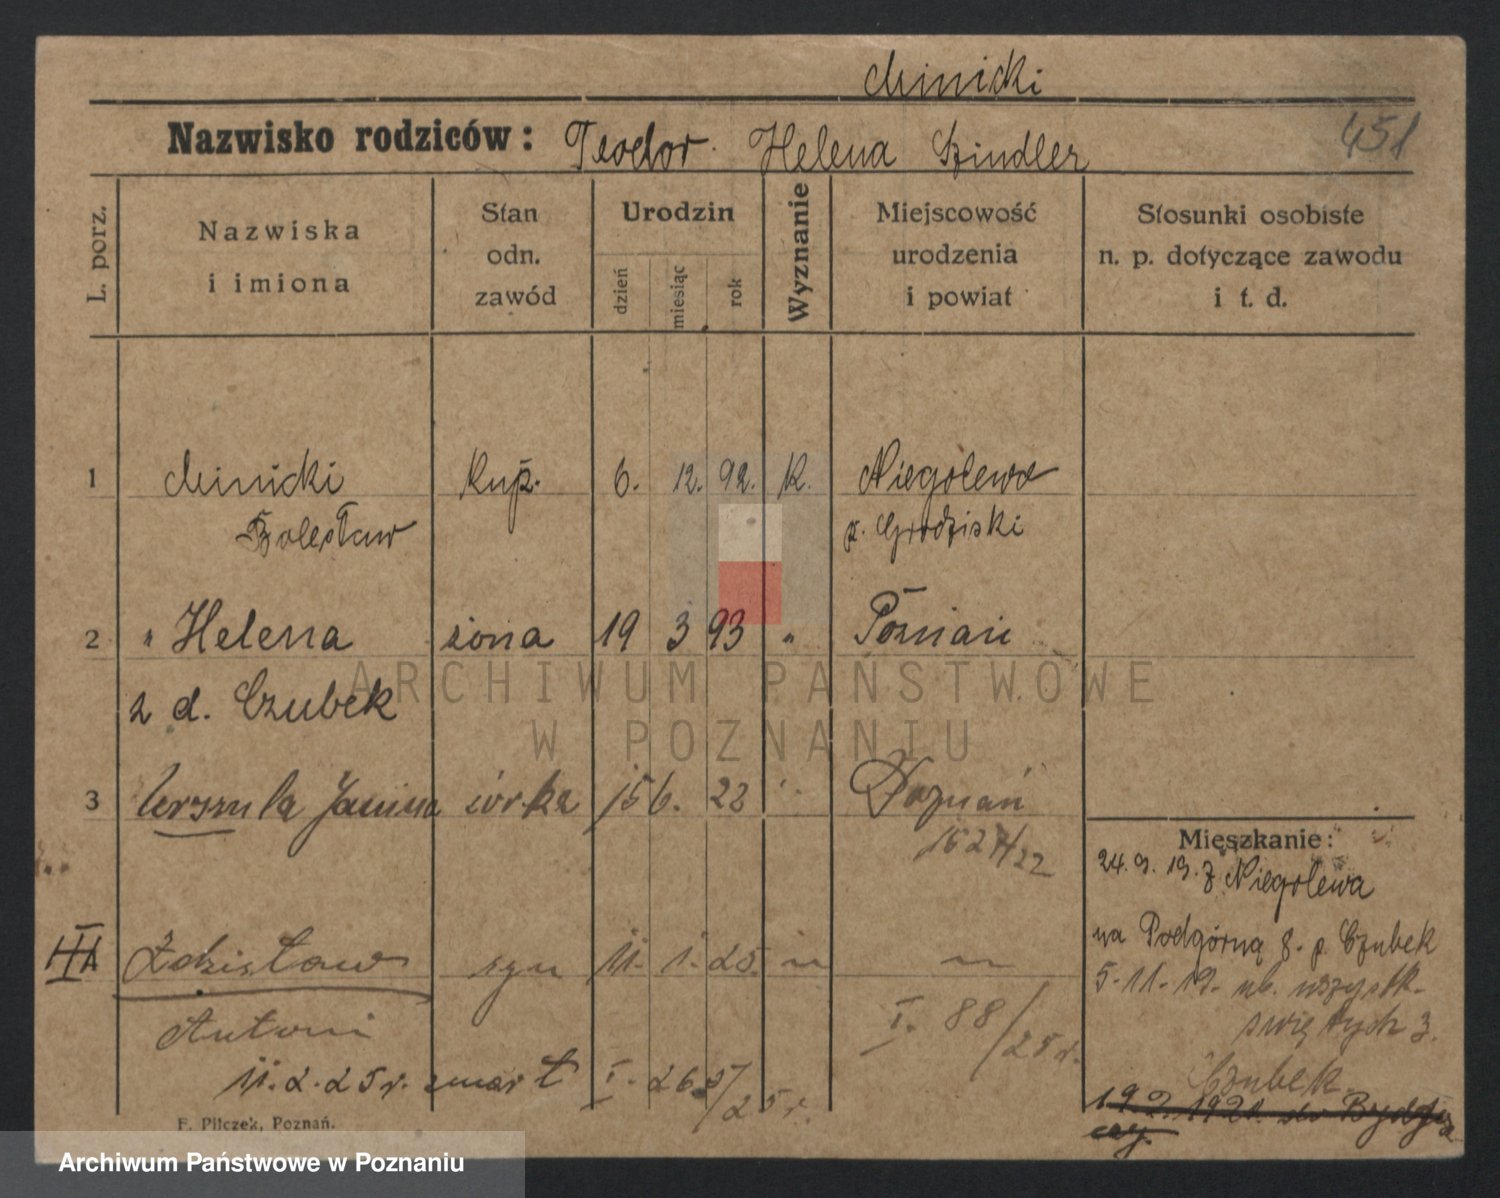 Minicki
451
Nazwisko rodziców: Teodor Helena Szindler
L. porz.
Nazwiska i imiona
Stan odn. zawód
Urodzin
dzień
miesiąc
rok
Wyznanie
Miejscowość urodzenia i powiat
Stosunki osobiste n. p. dotyczące zawodu i t. d.
1 Minicki Kup. 6. 12. 92. K. Niegolewo
Bolesław p. Grodziski
2 " Helena żona 19 3 93 " Poznań
z d. Czubek
3 Urszula Janina córka 15 6. 22 " Poznań
1627/22
Mieszkanie:
24. 9. 19. z Niegolewa
na Podgórną 8. p. Czubek
5. 11. 19. ul. wszystk.
świętych 3.
Czubek.
19. 2. 1920. do Bydgosz
czy.
III Zdzisław syn 11. 1. 25. " "
Antoni I. 88/25 r.
11. 2. 25 r. zmarł I. 267/25 r.
F. Pilczek, Poznań.
ARCHIWUM PAŃSTWOWE
W POZNANIU
Archiwum Państwowe w Poznaniu